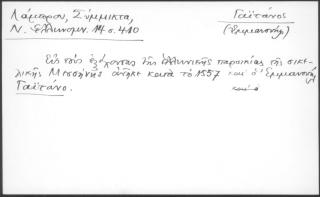 Λάμπρου, Σύμμικτα,
Ν. Ελληνομν. 14 σ. 410
Γαϊτάνος
(Ἐμμανουήλ)
Εἰς τοὺς ἄρχοντας τῆς ἑλληνικῆς παροικίας τῆς σικε-
λικῆς Μεσσήνης ἀνῆκε κατὰ τὸ 1557 καὶ ὁ Ἐμμανουὴλ
Γαϊτάνο.
καὶ ὁ